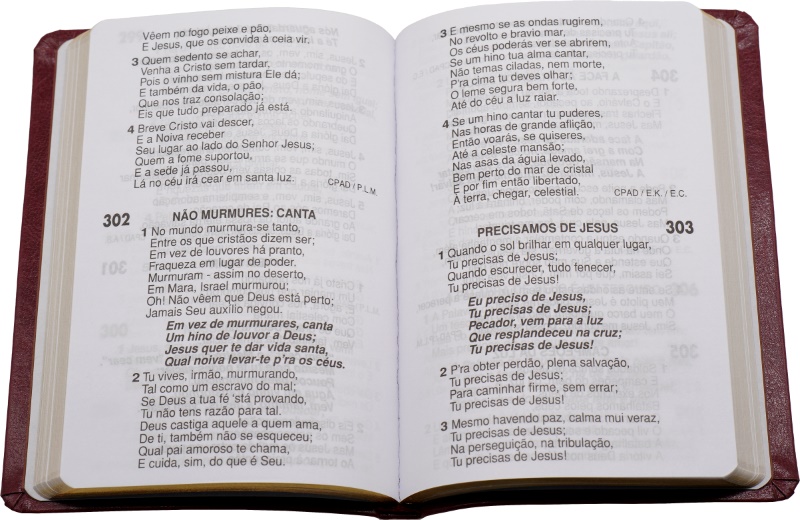 Vêem no fogo peixe e pão,
E Jesus, que os convida à ceia vir.
3 Quem sedento se achar,
Venha a Cristo sem tardar,
Pois o vinho sem mistura Ele dá;
E também da vida, o pão,
Que nos traz consolação;
Eis que tudo preparado já está.
4 Breve Cristo vai descer,
E a Noiva receber
Seu lugar ao lado do Senhor Jesus;
Quem a fome suportou,
E a sede já passou,
Lá no céu irá cear em santa luz.
CPAD / P.L.M.
302 NÃO MURMURES: CANTA
1 No mundo murmura-se tanto,
Entre os que cristãos dizem ser;
Em vez de louvores há pranto,
Fraqueza em lugar de poder.
Murmuram - assim no deserto,
Em Mara, Israel murmurou;
Oh! Não vêem que Deus está perto;
Jamais Seu auxílio negou.
Em vez de murmurares, canta
Um hino de louvor a Deus;
Jesus quer te dar vida santa,
Qual noiva levar-te p'ra os céus.
2 Tu vives, irmão, murmurando,
Tal como um escravo do mal;
Se Deus a tua fé 'stá provando,
Tu não tens razão para tal.
Deus castiga aquele a quem ama,
De ti, também não se esqueceu;
Qual pai amoroso te chama,
E cuida, sim, do que é Seu.
3 E mesmo se as ondas rugirem,
No revolto e bravio mar,
Os céus poderás ver se abrirem,
Se um hino tua alma cantar.
Não temas ciladas, nem morte,
P'ra cima tu deves olhar;
O leme segura bem forte,
Até do céu a luz raiar.
4 Se um hino cantar tu puderes,
Nas horas de grande aflição,
Então voarás, se quiseres,
Até a celeste mansão;
Nas asas da águia levado,
Bem perto do mar de cristal
E por fim então libertado,
À terra, chegar, celestial.
CPAD / E.K. / E.C.
PRECISAMOS DE JESUS 303
1 Quando o sol brilhar em qualquer lugar,
Tu precisas de Jesus;
Quando escurecer, tudo fenecer,
Tu precisas de Jesus!
Eu preciso de Jesus,
Tu precisas de Jesus;
Pecador, vem para a luz
Que resplandeceu na cruz;
Tu precisas de Jesus!
2 P'ra obter perdão, plena salvação,
Tu precisas de Jesus;
Para caminhar firme, sem errar;
Tu precisas de Jesus!
3 Mesmo havendo paz, calma mui veraz,
Tu precisas de Jesus;
Na perseguição, na tribulação,
Tu precisas de Jesus!